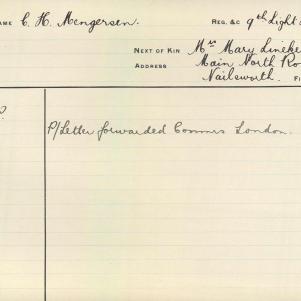 AME C. H. Mengersen. REG. &C 9th Light
NEXT OF KIN Mrs Mary Lineke
ADDRESS Main North Ro
Nailsworth. FI
P/Letter forwarded Commrs London.